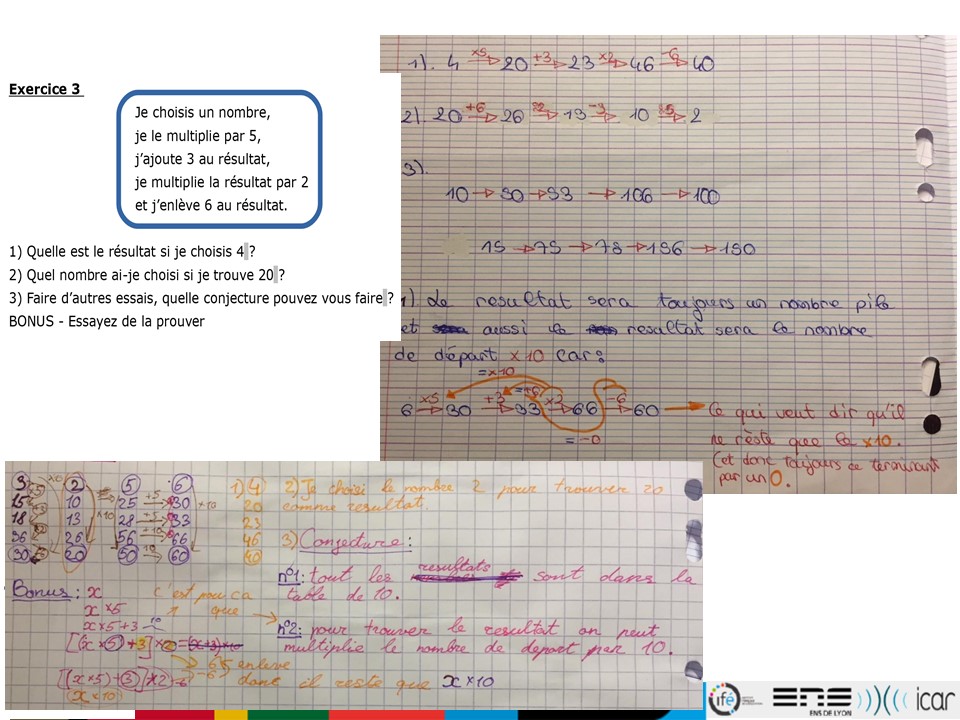 Exercice 3
Je choisis un nombre,
je le multiplie par 5,
j'ajoute 3 au résultat,
je multiplie la résultat par 2
et j'enlève 6 au résultat.
1) Quelle est le résultat si je choisis 4 ?
2) Quel nombre ai-je choisi si je trouve 20 ?
3) Faire d'autres essais, quelle conjecture pouvez vous faire ?
BONUS - Essayez de la prouver
1). 4 ×5→ 20 +3→ 23 ×2→ 46 -6→ 40
2). 20 +6→ 26 → 13 -3→ 10 → 2
3).
10 → 50 → 53 → 106 → 100
15 → 75 → 78 → 156 → 150
1) Le resultat sera toujours un nombre pile
et aussi le resultat sera le nombre
de départ ×10 car:
=×10
=+6
6 ×5→ 30 +3→ 33 ×2→ 66 -6→ 60
=-0
Ce qui veut dir qu'il
ne reste que le ×10.
(et donc toujours ce terminant
par un 0.
3 2 5 6
15 10 25 +5→ 30
18 13 28 +5→ 33
36 26 56 +10→ 66
30 20 50 10→ 60
×10 ×10 ×10
1) 4
20
23
46
40
2) Je choisi le nombre 2 pour trouver 20
comme resultat.
3) Conjecture:
n°1: tout les resultats sont dans la
table de 10.
n°2: pour trouver le resultat on peut
multiplie le nombre de depart par 10.
Bonus: x
x×5
x×5+3
[(x×5)+3]×2
[(x×5)+3]×2-6
(x×10)
c'est pour ca
que
enleve
donc il reste que x×10
ifé
ENS
ENS DE LYON
icar